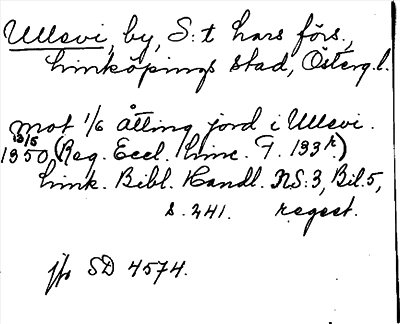 Ullevi, by, S:t Lars förs.,
Linköpings stad, Österg. l.
mot 1/6 åtting jord i Ullevi.
13/5
1350 (Reg. Eccl. Linc. F. 133 r.)
Link. Bibl. Handl. NS:3, Bil. 5,
s. 241. regest.
jfr SD 4574.